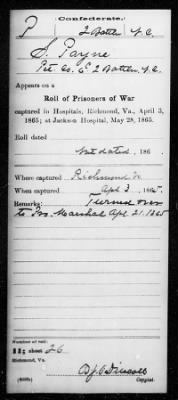 Confederate.
P 2 Batt'n N.C.
S. Payne
Pvt Co. G 2 Batt'n N.C.
Appears on a
Roll of Prisoners of War
captured in Hospitals, Richmond, Va., April 3,
1865; at Jackson Hospital, May 28, 1865.
Roll dated
Not dated, 186
Where captured Richmond Va
When captured Apl 3, 1865.
Remarks: Turned over
to Pro. Marshal Apl. 21. 1865
Number of roll:
sheet 26
Richmond, Va.
Copyist.